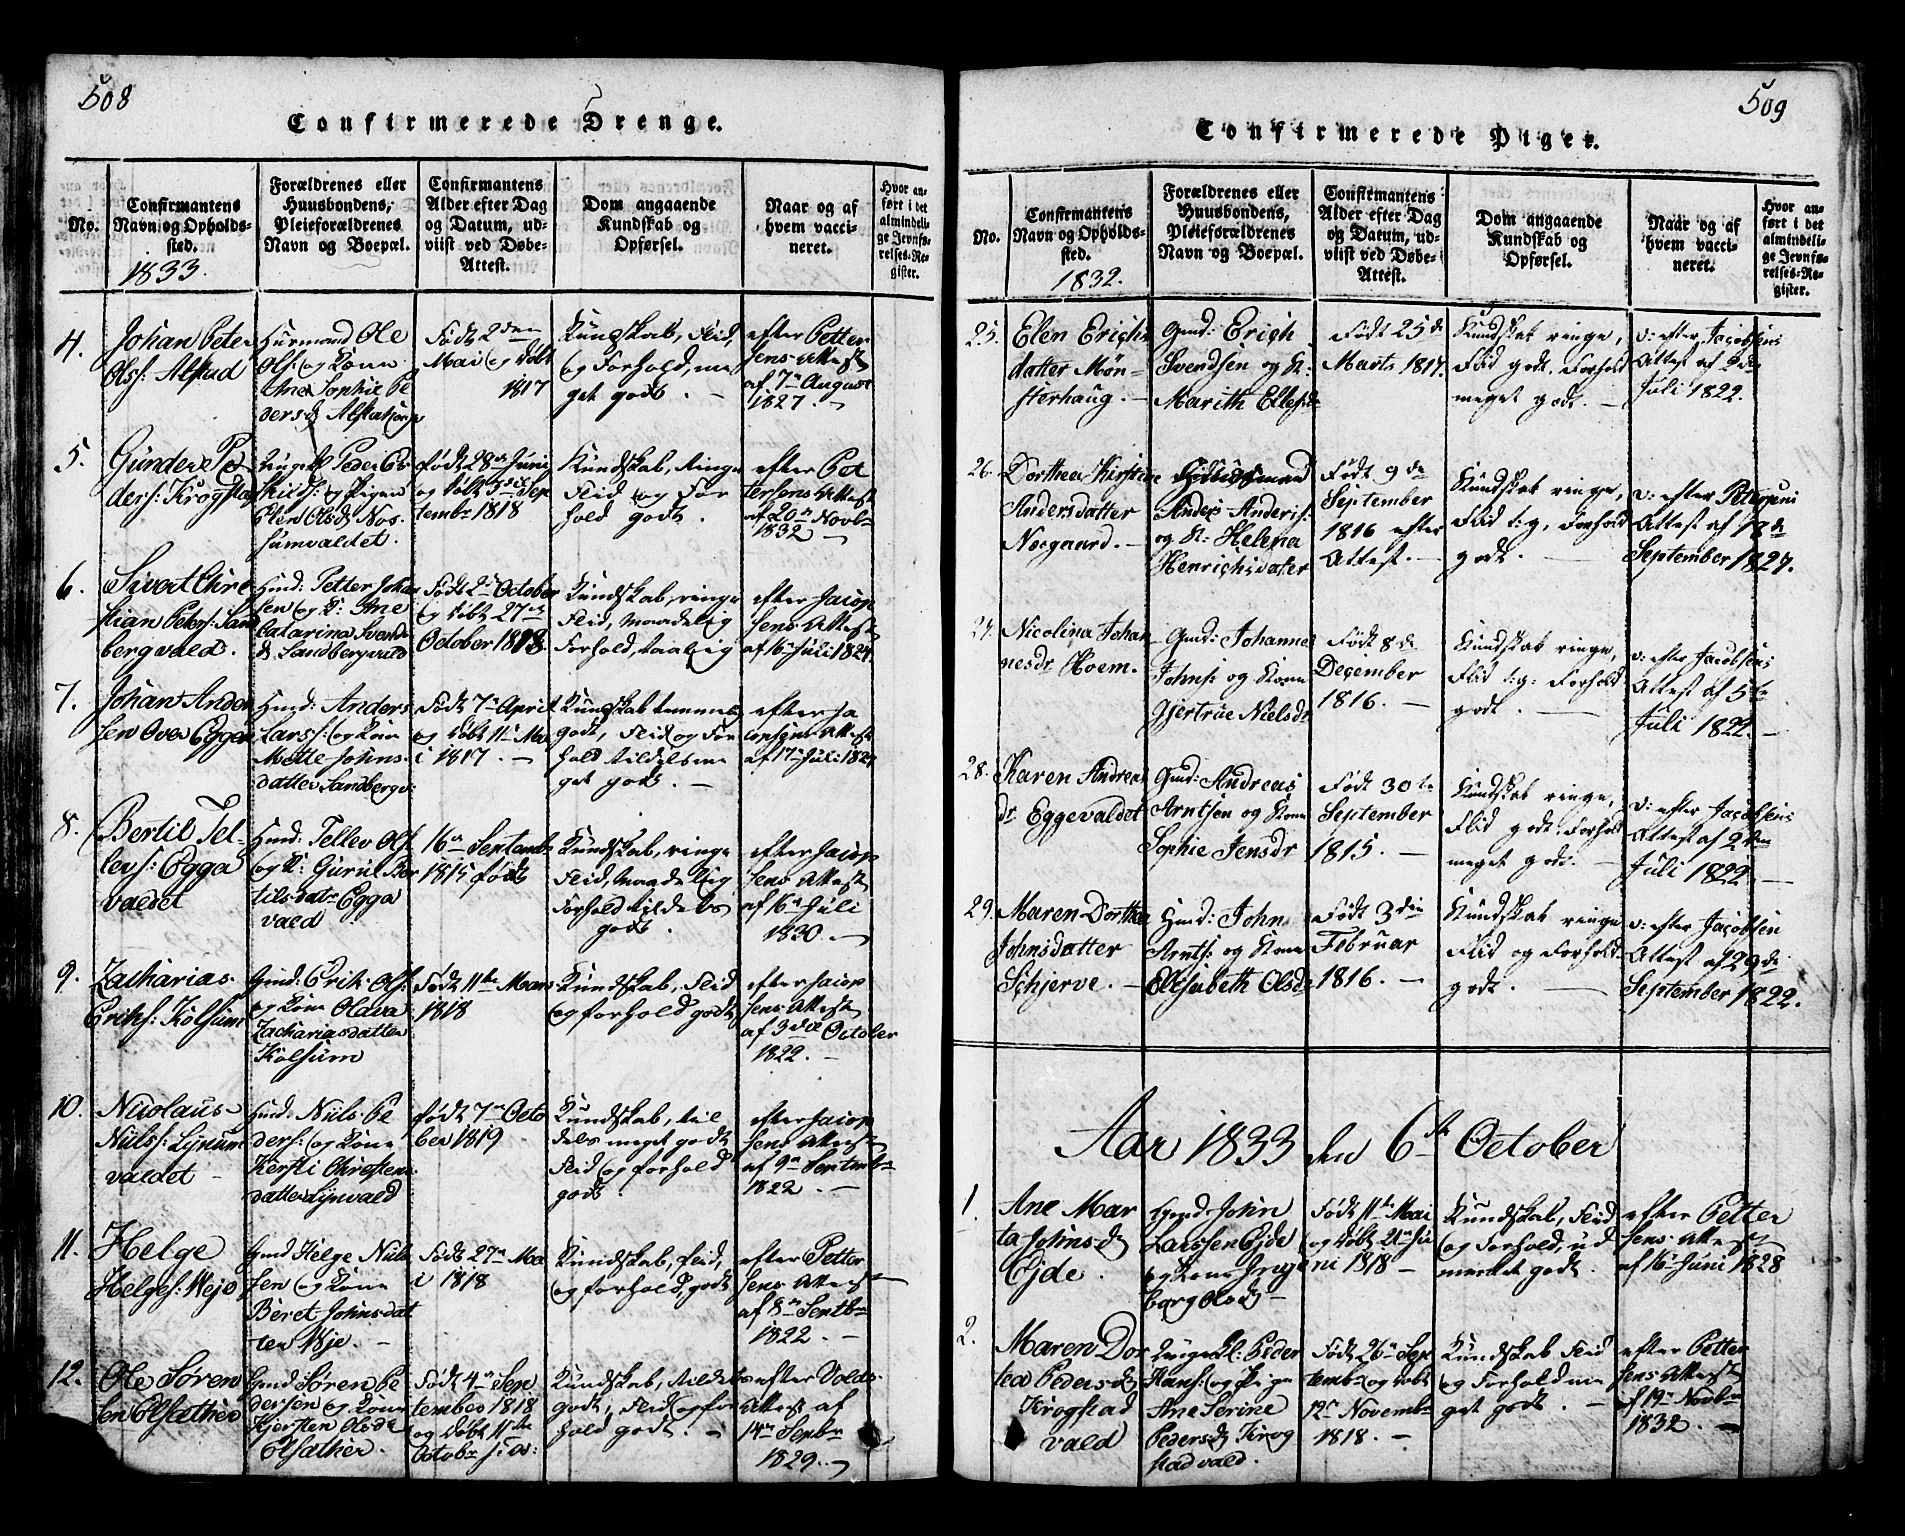 508
Confirmerede Drenge.
No.
Confirmantens
Navn og Opholds-
sted.
1833.
Forældrenes eller
Huusbondens,
Pleieforældrenes
Navn og Boepæl.
Confirmantens
Alder efter Dag
og Datum, ud-
viist ved Døbe-
Attest.
Dom angaaende
Kundskab og
Opførsel.
Naar og af
hvem vacci-
neret.
Hvor an-
ført i det
almindeli-
ge Jevnfø-
relses-Re-
gister.
4.
Johan Peter
Olss: Alstad
Huusmand Ole
Ols: og Kone
Ane Sophie Pe
dersd Alstad
Født 2den
Mai og døbt
1817
Kundskab, Flid,
og Forhold, me
get godt. -
efter Petter
sens Attest
af 7de August
1827. -
5.
Gunder Pe
ders: Krogstad
Ungk Peder
og Pigen
Elen Olsd Nos
sumvaldet.
født 28de Juni
og døbt 3die Sep
tembr 1818
Kundskab, ringe
Flid og For
hold godt.
efter Pet
tersens Attest
af 20de Novbr
1832 -
6.
Sivert Chri
stian Peters: Sand
bergvald.
Huusd: Petter Johan
sen og K: Ane
Catarina Svends
d Sandbergvald
Født 2de October
og døbt 27de
October 1818
Kundskab, ringe
Flid, maadelig
Forhold, taalig
efter Jacop
sens Attest
af 16de Juli 1824
7.
Johan Ander
sen Over Eggen
Huusd: Anders
Larss: og Kone
Mette Johns-
datter Sandbergv:
Født 7de April
og døbt 11te Ma
i 1817. -
Kundskab temmelig
godt, Flid og For
hold tildels me
get godt. -
efter Ja
copsens Attest
af 17de Juli 1824
8.
Bertil Tel-
levs: Egga
valdet
Huusd: Tellev Ols
og K: Gurul Ber
tilsdatr Egga
vald
16de Septemb
1815 født
Kundskab, ringe
Flid, maadelig
Forhold tildels
godt.
efter Jacop
sens Attest
af 16de Juli
1830. -
9.
Zacharias
Eriks: Kolsum
Gmd: Erik Ols:
og Kone Olava
Zachariasdatter
Kolsum
Født 11te Mars
1818
Kundskab, Flid
og forhold godt
efter Jacop
sens Attest
af 3die October
1822. -
10.
Nicolaus
Niils: Lynum
valdet -
Huusd: Niils Pe
ders: og Kone
Kersti Christens
datter Lynvald
født 7de Octo
ber 1819
Kundskab, til
dels meget godt
Flid og forhold
godt.
efter Jacop
sens Attest
af 9de Septembr
1822. -
11.
Helge
Helges: Weje
Gmd Helge Niils
sen og Kone
Beret Johnsdat
ter Weje. -
Født 27de Ma
i 1818
Kundskab, Flid,
og forhold, godt
efter Petter
sens Attest
af 8de Septbr
1822. -
12.
Ole Søren
sen Olsather
Gmd Søren Pe
dersen og Kone
Kjersten Olsd
Olsather.
Født 4de Sep
tember 1818
og døbt 11te
Octobr s: A:
Kundskab, tildels
godt, Flid og for
hold godt. -
efter Volds
Attest af
14de Septbr
1829. -
509
Confirmerede Piger.
No.
Confirmantens
Navn og Opholds-
sted.
1832.
Forældrenes eller
Huusbondens,
Pleieforældrenes
Navn og Boepæl.
Confirmantens
Alder efter Dag
og Datum, ud-
viist ved Døbe-
Attest.
Dom angaaende
Kundskab og
Opførsel.
Naar og af
hvem vacci-
neret.
Hvor an-
ført i det
almindeli-
ge Jevnfø-
relses-Re-
gister.
25.
Elen Erichs
datter Møn-
sterhaug. -
Gmd: Erich
Svendsen og K:
Marith Ellefsdr
Født 25de
Marts 1817.
Kundskab ringe,
Flid godt, Forhold
meget godt. -
v: efter Jacobsens
Attest af 2den
Juli 1822.
26.
Dorthea Kirstine
Andersdatter
Norgaard. -
Anders Anders:
og K: Helena
Henrichsdatter
Født 9de
September
1816 efter
Attest. -
Kundskab ringe,
Flid t: g, Forhold
godt. -
v: efter Petersens
Attest af 18de
September 1827.
27.
Nicolina Johan
nesdr Hoem.
Gmd: Johannes
Johns: og Kone
Gjertrue Nielsdr
Født 8de
December
1816. -
Kundskab ringe,
Flid t: g: Forhold
godt. -
v: efter Jacobsens
Attest af 5te
Juli 1822. -
28.
Karen Andreas
dr Eggevaldet
Gmd: Andreas
Arntsen og Kone
Sophie Jensdr
Født 30te
September
1815. -
Kundskab ringe,
Flid godt. Forhold
meget godt. -
v: efter Jacobsens
Attest af 2den
Juli 1822. -
29.
Maren Dorthea
Johnsdatter
Schjerve. -
Huusd: John
Arnts: og Kone
Elisabeth Olsdr
Født 3die
Februar
1816. -
Kundskab ringe
Flid og Forhold
godt. -
v: efter Jacobsen
Attest af 29de
September 1822.
Aar 1833 den 6te October
1.
Ane Mar
ta Johnsd
Ejde.
Gmd John
Larssen Ejde
og Kone Inge
borg Olsd -
Født 11te Mai
og døbt 21de Ju
ni 1818 -
Kundskab, Flid
og Forhold, ud
mærket godt.
efter Petter
sens Attest
af 16de Juni 1828
2.
Maren Dor
tea Pedersd
Krogstad
vald
Ungkl: Peder
Hans: og Pige
Ane Serine
Pedersd Krog
stadvald.
Født 26de Sep
tembr og døbt
12te Novembr
1818. -
Kundskab Flid
og Forhold me
get godt. -
efter Petter
sens Attest
af 19de Novbr
1832. -